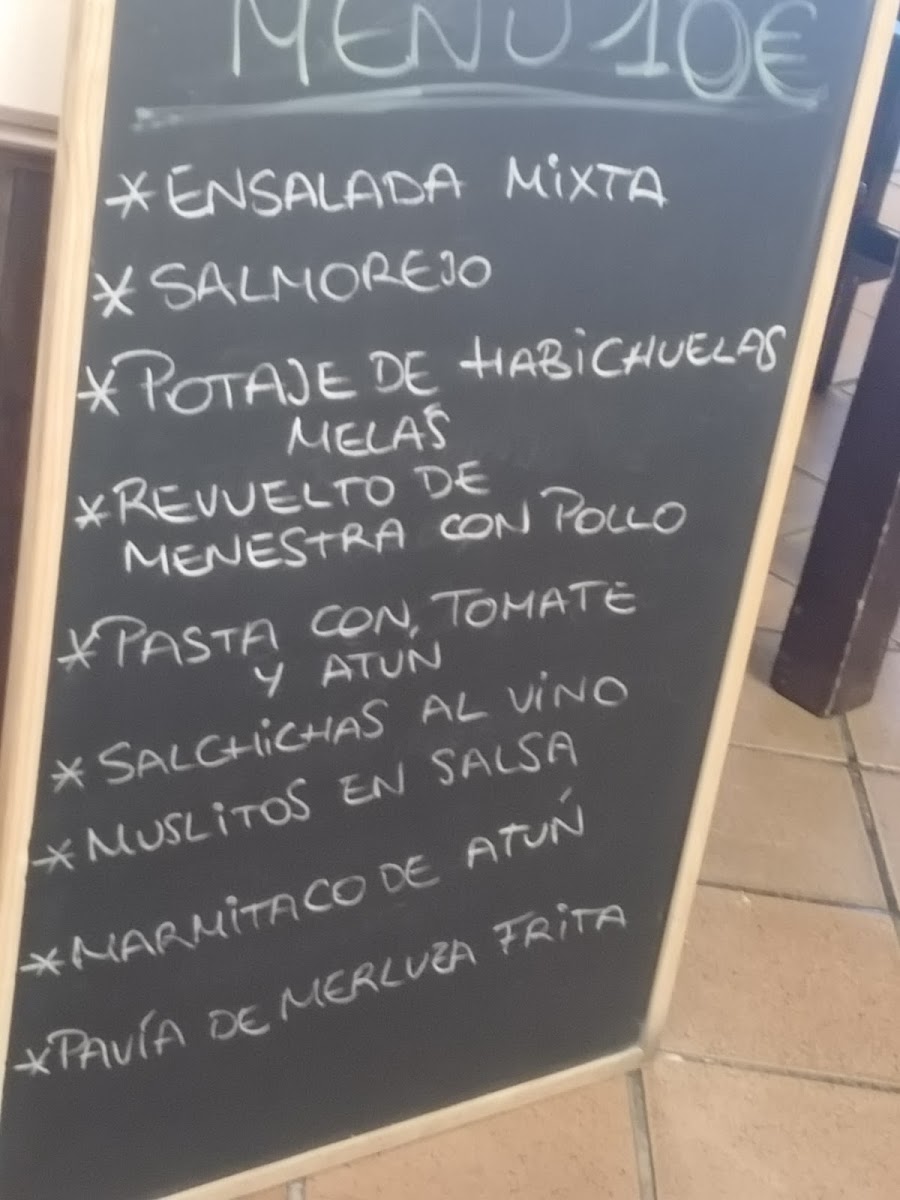 MENU 10€
*ENSALADA MiXTA
*SALMOREJO
*POTAJE DE HABiCHUELAS
MELÁS
*REVUELTO DE
MENESTRA CON POLLO
*PASTA CON TOMATE
Y ATÚN
*SALCHiCHAS AL ViNO
*MUSLiTOS EN SALSA
*MARMiTACO DE ATÚN
*PAVÍA DE MERLUZA FRiTA